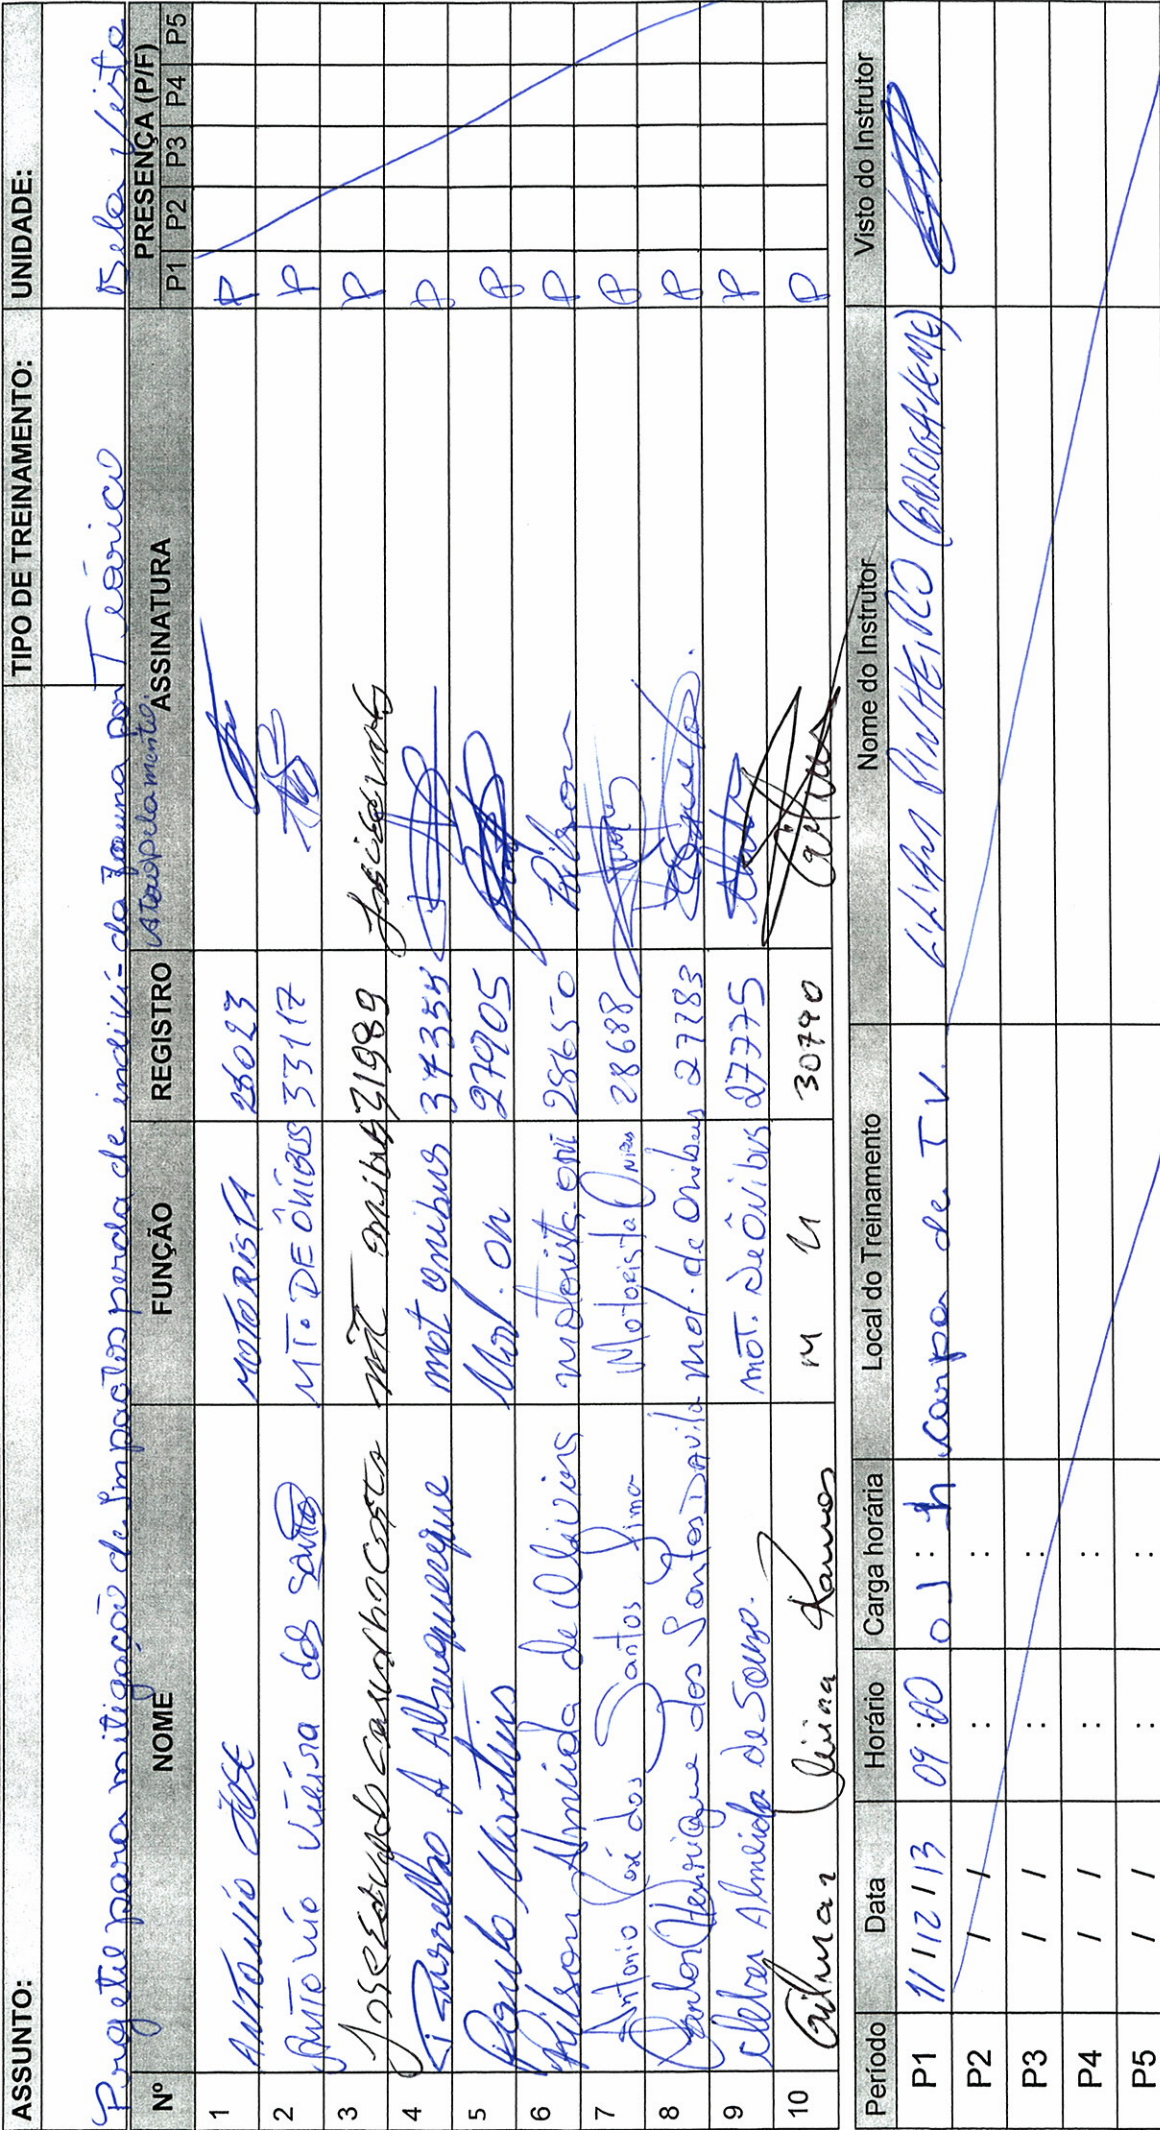 ASSUNTO: TIPO DE TREINAMENTO: UNIDADE:
Projeto para mitigação de Impactos perda de indiví- da fauna por Teórico Bela Vista
Atropelamento.
Nº NOME FUNÇÃO REGISTRO ASSINATURA PRESENÇA (P/F)
P1 P2 P3 P4 P5
1 ANTONIO JOSE MOTORISTA 26023 P
2 ANTONIO Vieira dos Santos MT. DE ÔNIBUS 33117 P
3 JOSE Eduardo Carvalho Costa MT onibus 21989 P
4 A Albuquerque mot onibus 37354 P
5 Paulo Martins Mot. On 27905 P
6 Rilson Almeida de Oliveira motorista-oni 28650 Rilson P
7 Antonio José dos Santos Lima Motorista Onibus 28688 P
8 Carlos Henrique dos Santos DAvila mot. de Onibus 27783 P
9 Cleber Almeida de Souza. MOT. De Ônibus 27775 P
10 Gilmar Ramos 30740 P
Período Data Horário Carga horária Local do Treinamento Nome do Instrutor Visto do Instrutor
P1 11/12/13 09:00 01:h campo de TV. LILIAN PINHEIRO (BIOLOGA-LEME)
P2 / / : :
P3 / / : :
P4 / / : :
P5 / / : :